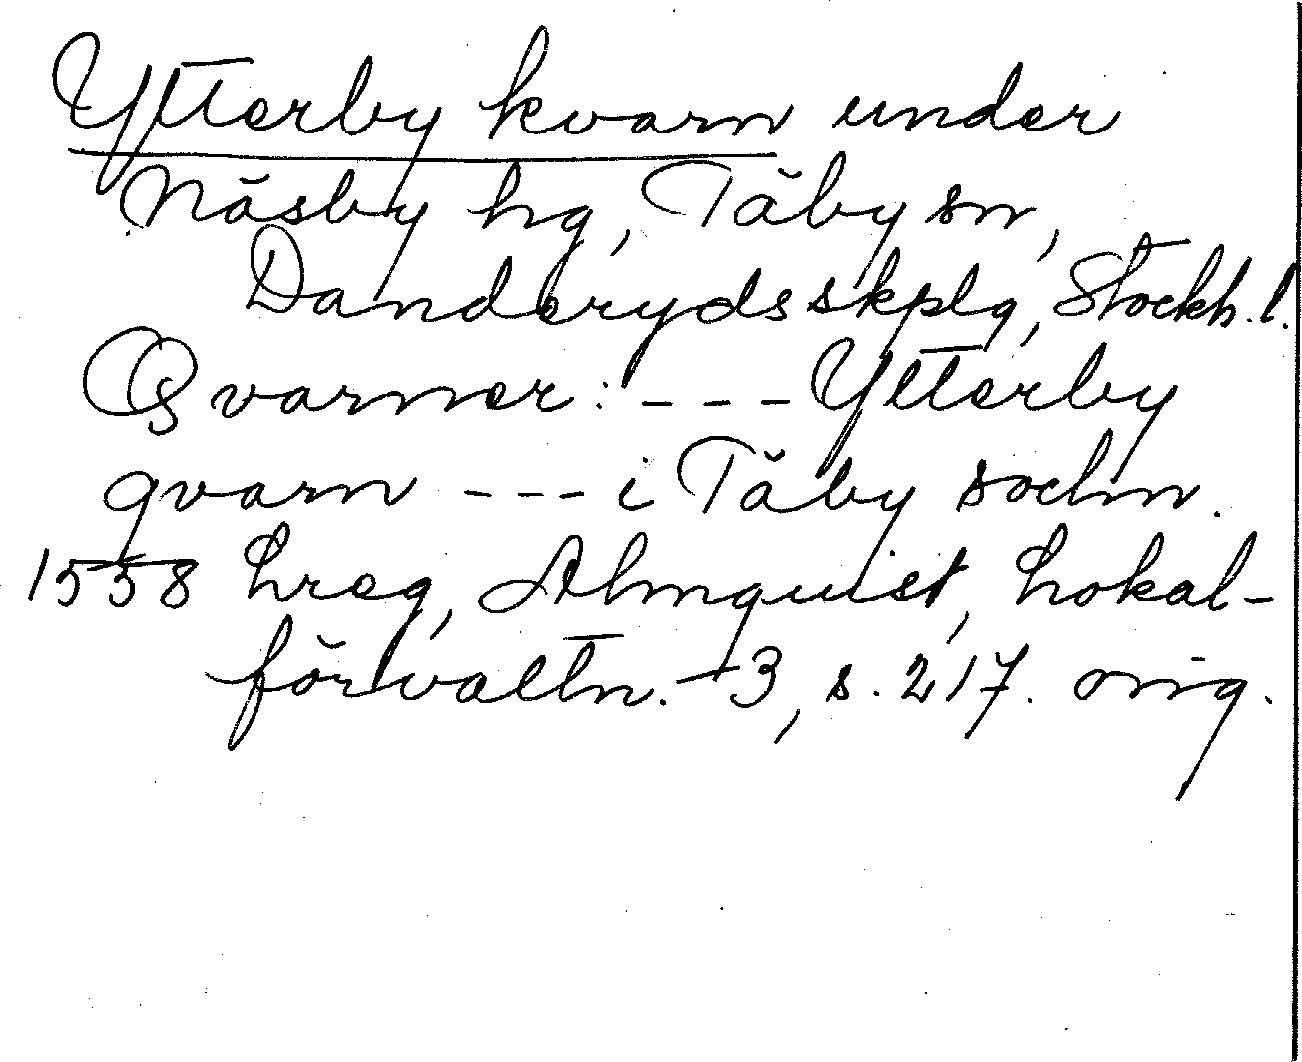 Ytterby kvarn under
Näsby hg, Täby sn,
Danderyds skplg, Stockh. l.
Qvarner: --- Ytterby
qvarn --- i Täby sochn.
1558 Lreg, Almquist, Lokal-
förvaltn. 3, s. 217. orig.